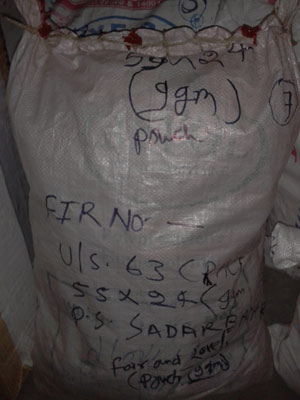 55x24
(9gm)
7
pouch.
FIR NO. —
U/S. 63 C
55x24 (9gm
P.S. SADAR
fair and Lovely
(Pouch (9gm)